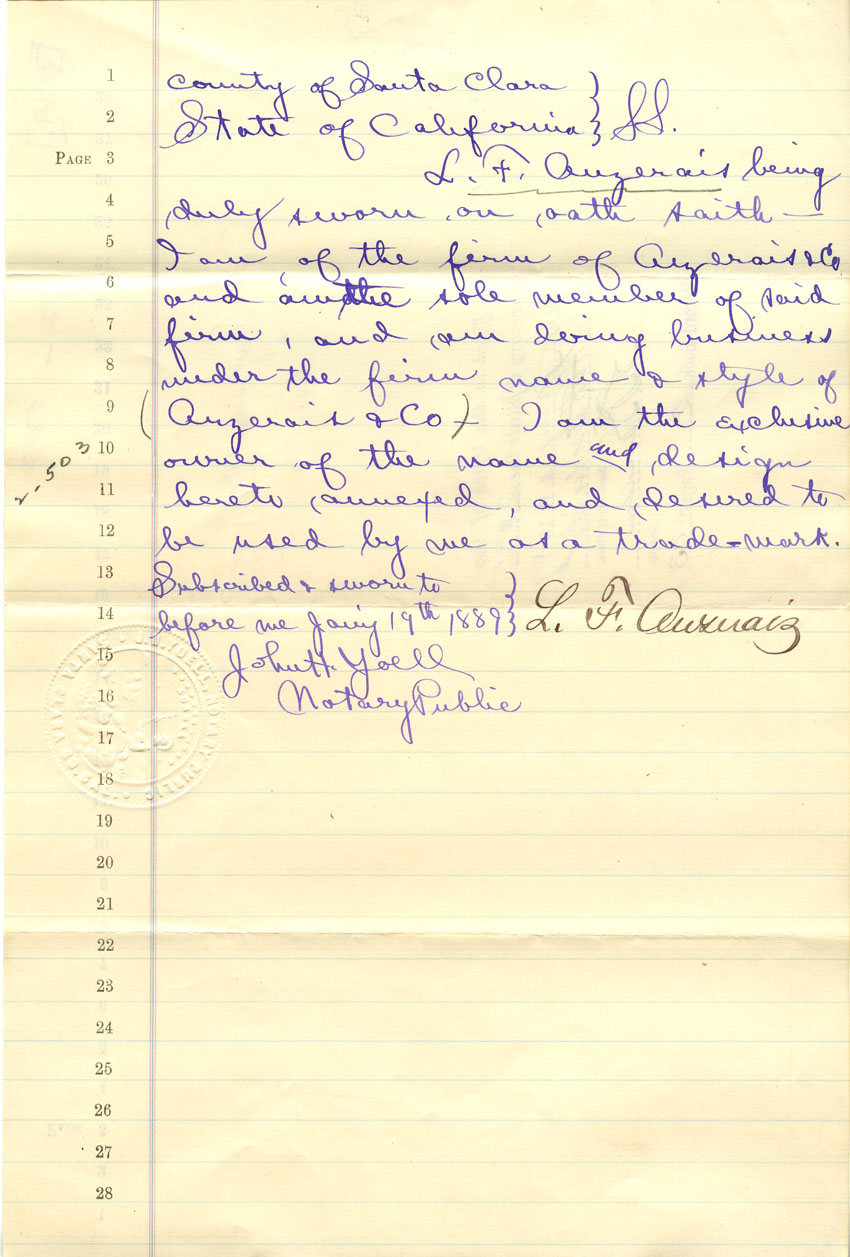 1 county of Santa Clara }
2 State of California } SS.
PAGE 3 L. F. Auzerais being
4 duly sworn on oath saith —
5 I am of the firm of Auzerais & Co
6 and am the sole member of said
7 firm, and am doing business
8 under the firm name & style of
9 (Auzerais & Co) - I am the exclusive
2-503
10 owner of the name and design
11 hereto annexed, and desired to
12 be used by me as a trade-mark.
13 Subscribed & sworn to }
14 before me Jan'y 19th 1889 } L. F. Auzerais
15 John H. Yoell
16 Notary Public
17
18
19
20
21
22
23
24
25
26
27
28
NOTARY PUBLIC